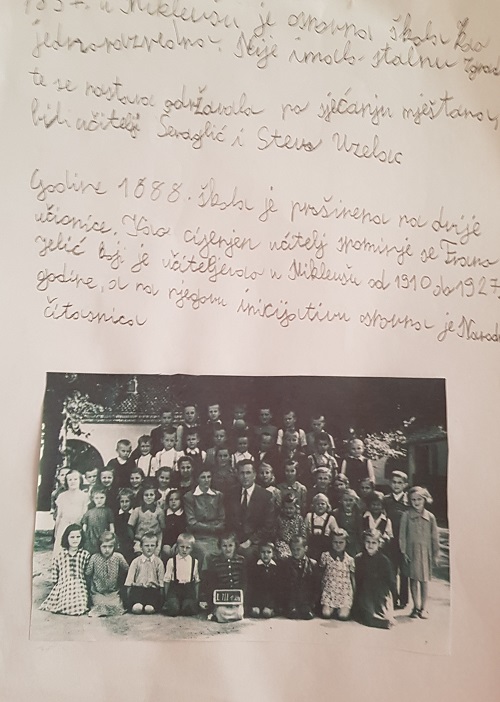 u Mikleušu je osnovna škola kao
jednorazredna. Nije imala stalnu zgrad
te se nastava održavala po sjećanju mještana,
bili učitelji Seraglić i Stevo Uzelac
Godine 1888. škola je proširena na dvije
učionice. Kao cijenjen učitelj spominje se Franu
Jelić koji je učiteljevao u Mikleušu od 1910 do 1927
godine, a na njegovu inicijativu osnovna je Narod
čitaonica